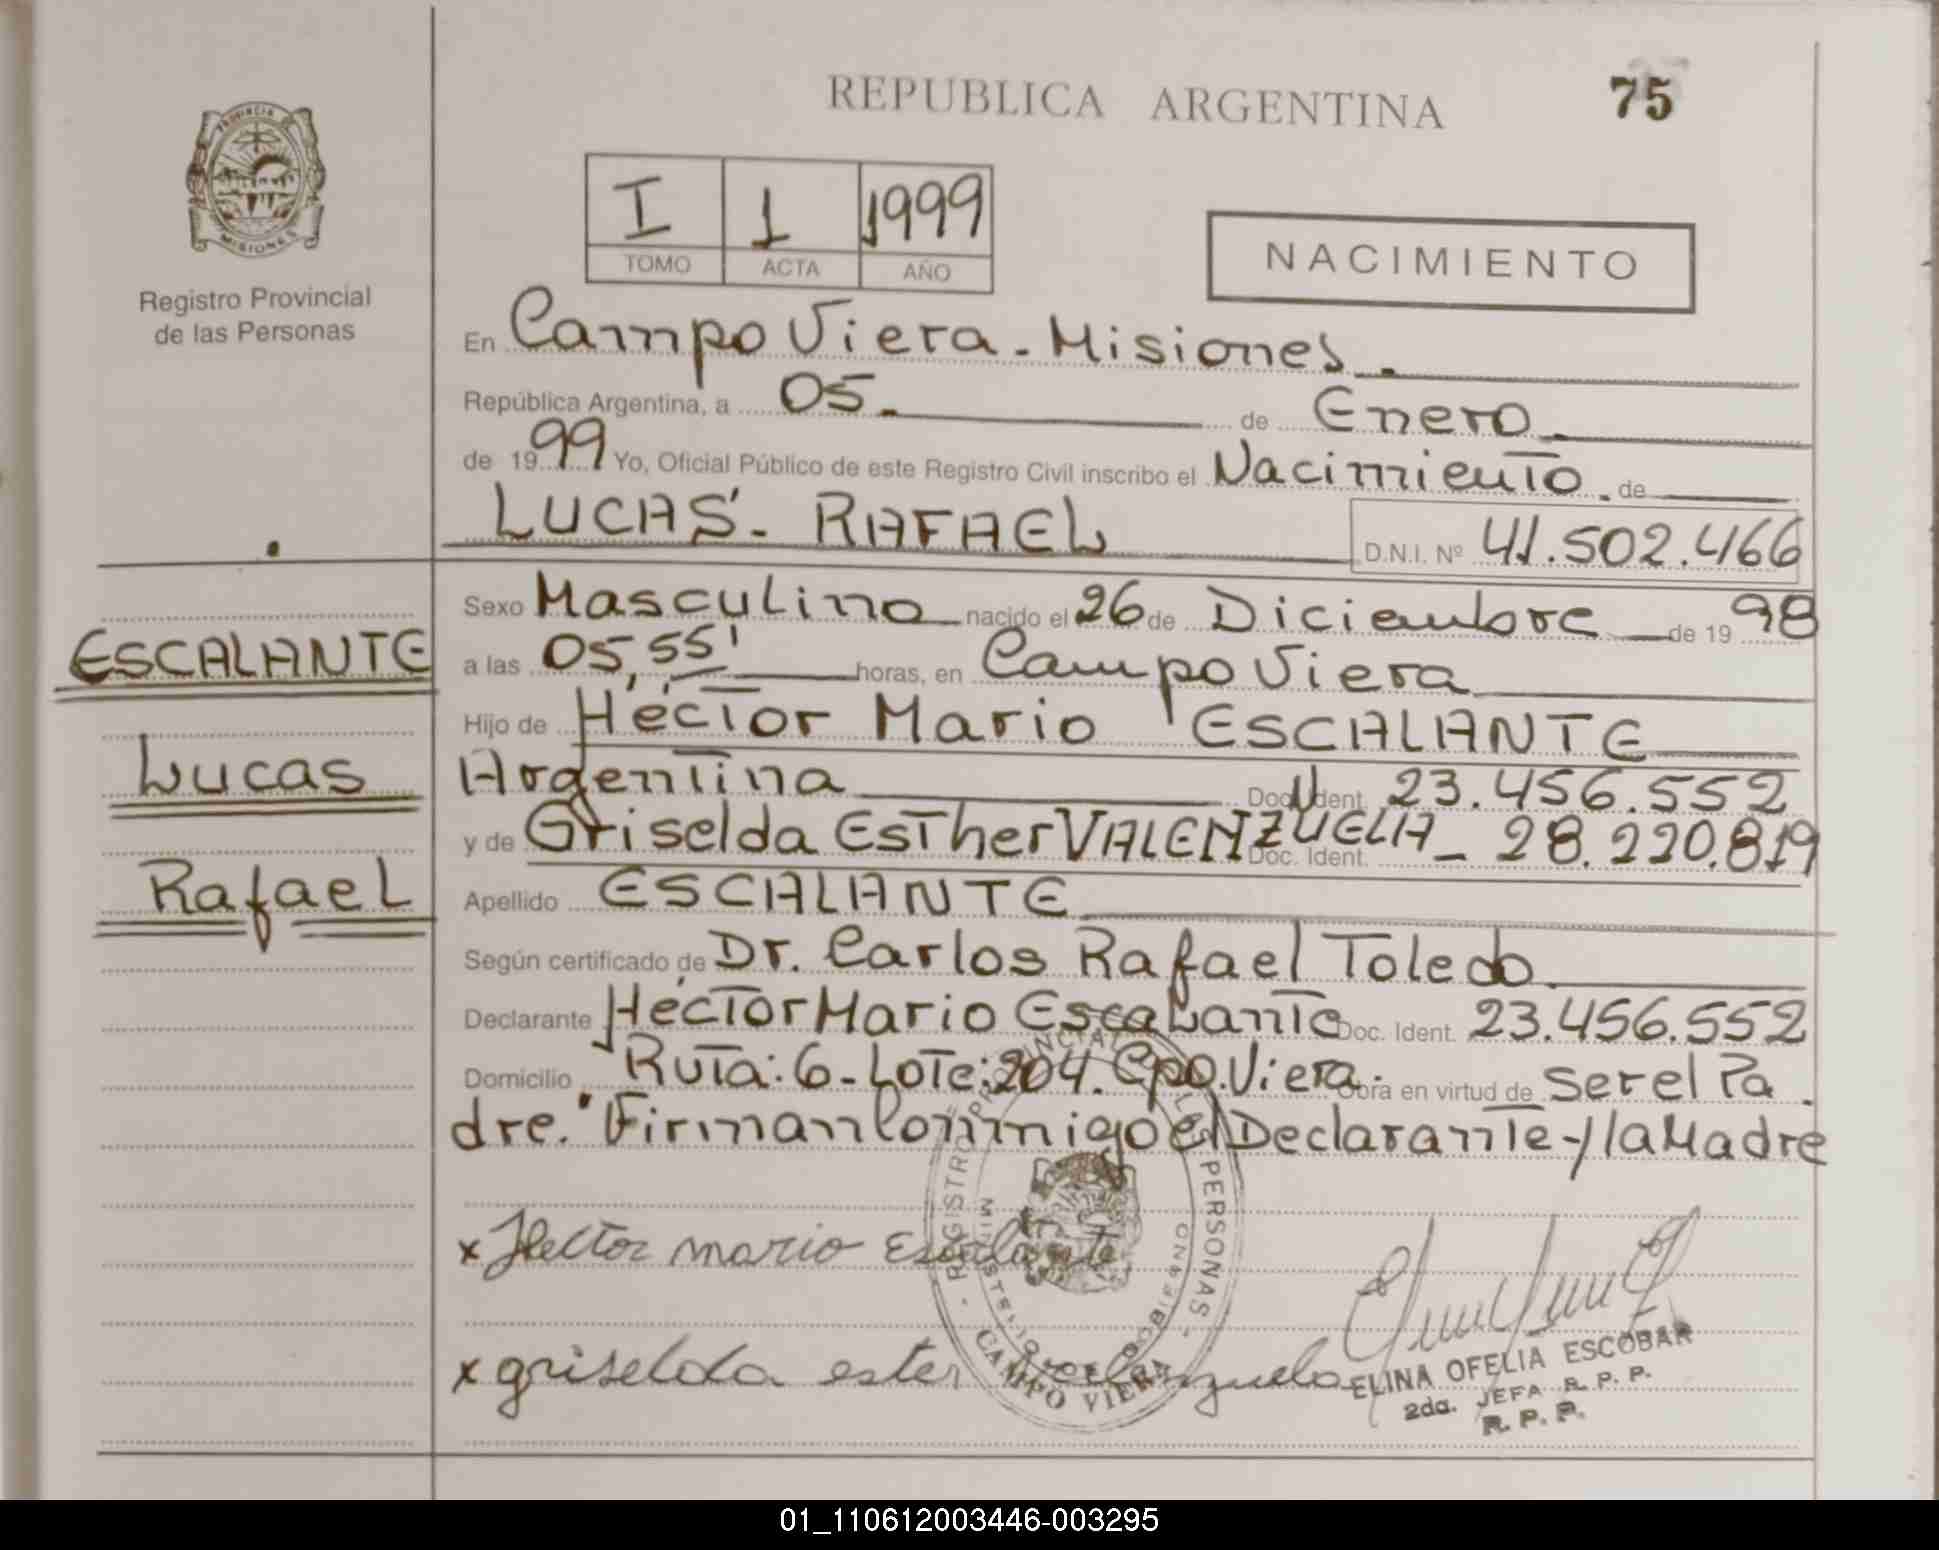 REPUBLICA ARGENTINA
75
PROVINCIA
MISIONES
Registro Provincial
de las Personas
I 1 1999
TOMO ACTA AÑO
NACIMIENTO
En Campo Viera - Misiones.
República Argentina, a 05. de Enero
de 1999 Yo, Oficial Público de este Registro Civil inscribo el Nacimiento. de
LUCAS - RAFAEL D.N.I. Nº 41.502.466
Sexo Masculino nacido el 26 de Diciembre de 1998
a las 05,55' horas, en Campo Viera
Hijo de Héctor Mario ESCALANTE
Argentina Doc. Ident. 23.456.552
y de Griselda Esther VALENZUELA - Doc. Ident. 28.220.819
Apellido ESCALANTE
Según certificado de Dr. Carlos Rafael Toledo.
Declarante Héctor Mario Escalante Doc. Ident. 23.456.552
Domicilio Ruta: 6 - Lote: 204. Cpo. Viera. Obra en virtud de Ser el Pa
dre. Firman Conmigo el Declarante y la Madre
ESCALANTE
Lucas
Rafael
x Hector mario Escalante
x griselda ester valenzuela
REGISTRO PROVINCIAL DE LAS PERSONAS
MINISTERIO DE GOBIERNO
CAMPO VIERA
ELINA OFELIA ESCOBAR
2da. JEFA R. P. P.
R. P. P.
01_110612003446-003295